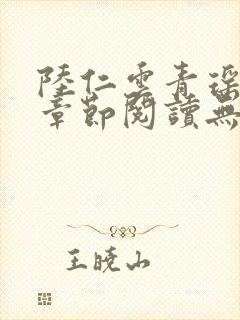 陸仁雲青瑶
章節閱讀無
王曉山